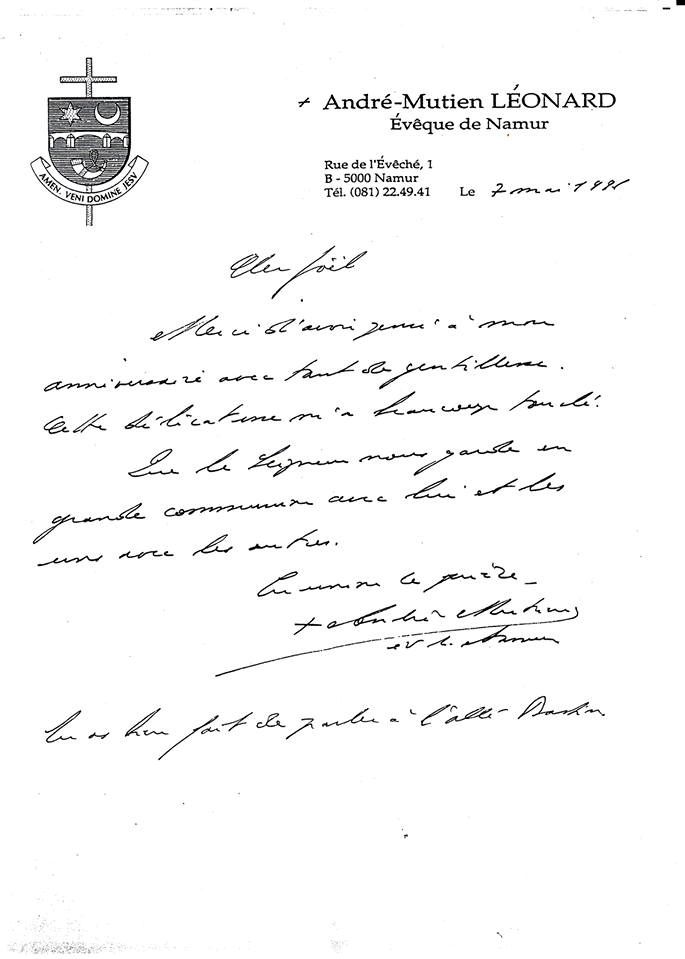 + André-Mutien LÉONARD
Évêque de Namur
Rue de l'Évêché, 1
B - 5000 Namur
Tél. (081) 22.49.41
Le 7 mai
AMEN. VENI DOMINE JESV
Cher Joël
Merci d'avoir pensé à mon
anniversaire avec tant de gentillesse.
Cette délicatesse m'a beaucoup touché.
Que le Seigneur nous garde en
grande communion avec lui et les
uns avec les autres.
En union de prière_
+ André-Mutien
év. de Namur
Tu as bien fait de parler à l'abbé